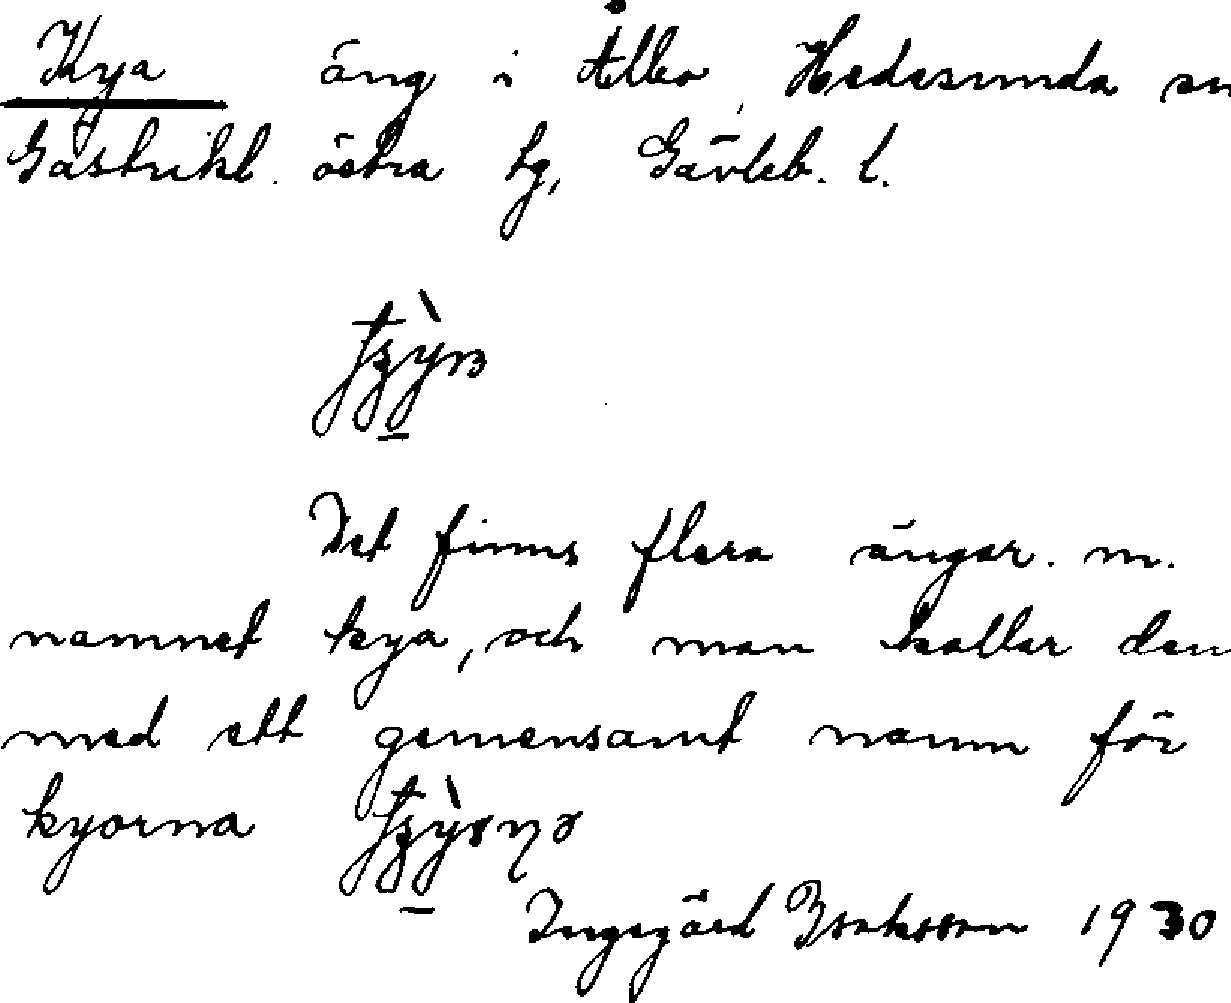 Kya äng i Ålbo, Hedesunda sn
Gästrikl. östra tg, Gävleb. l.
Det finns flera ängar. m.
namnet kya, och man kallar dem
med ett gemensamt namn för
kyorna
Ingegärd Isaksson 1930